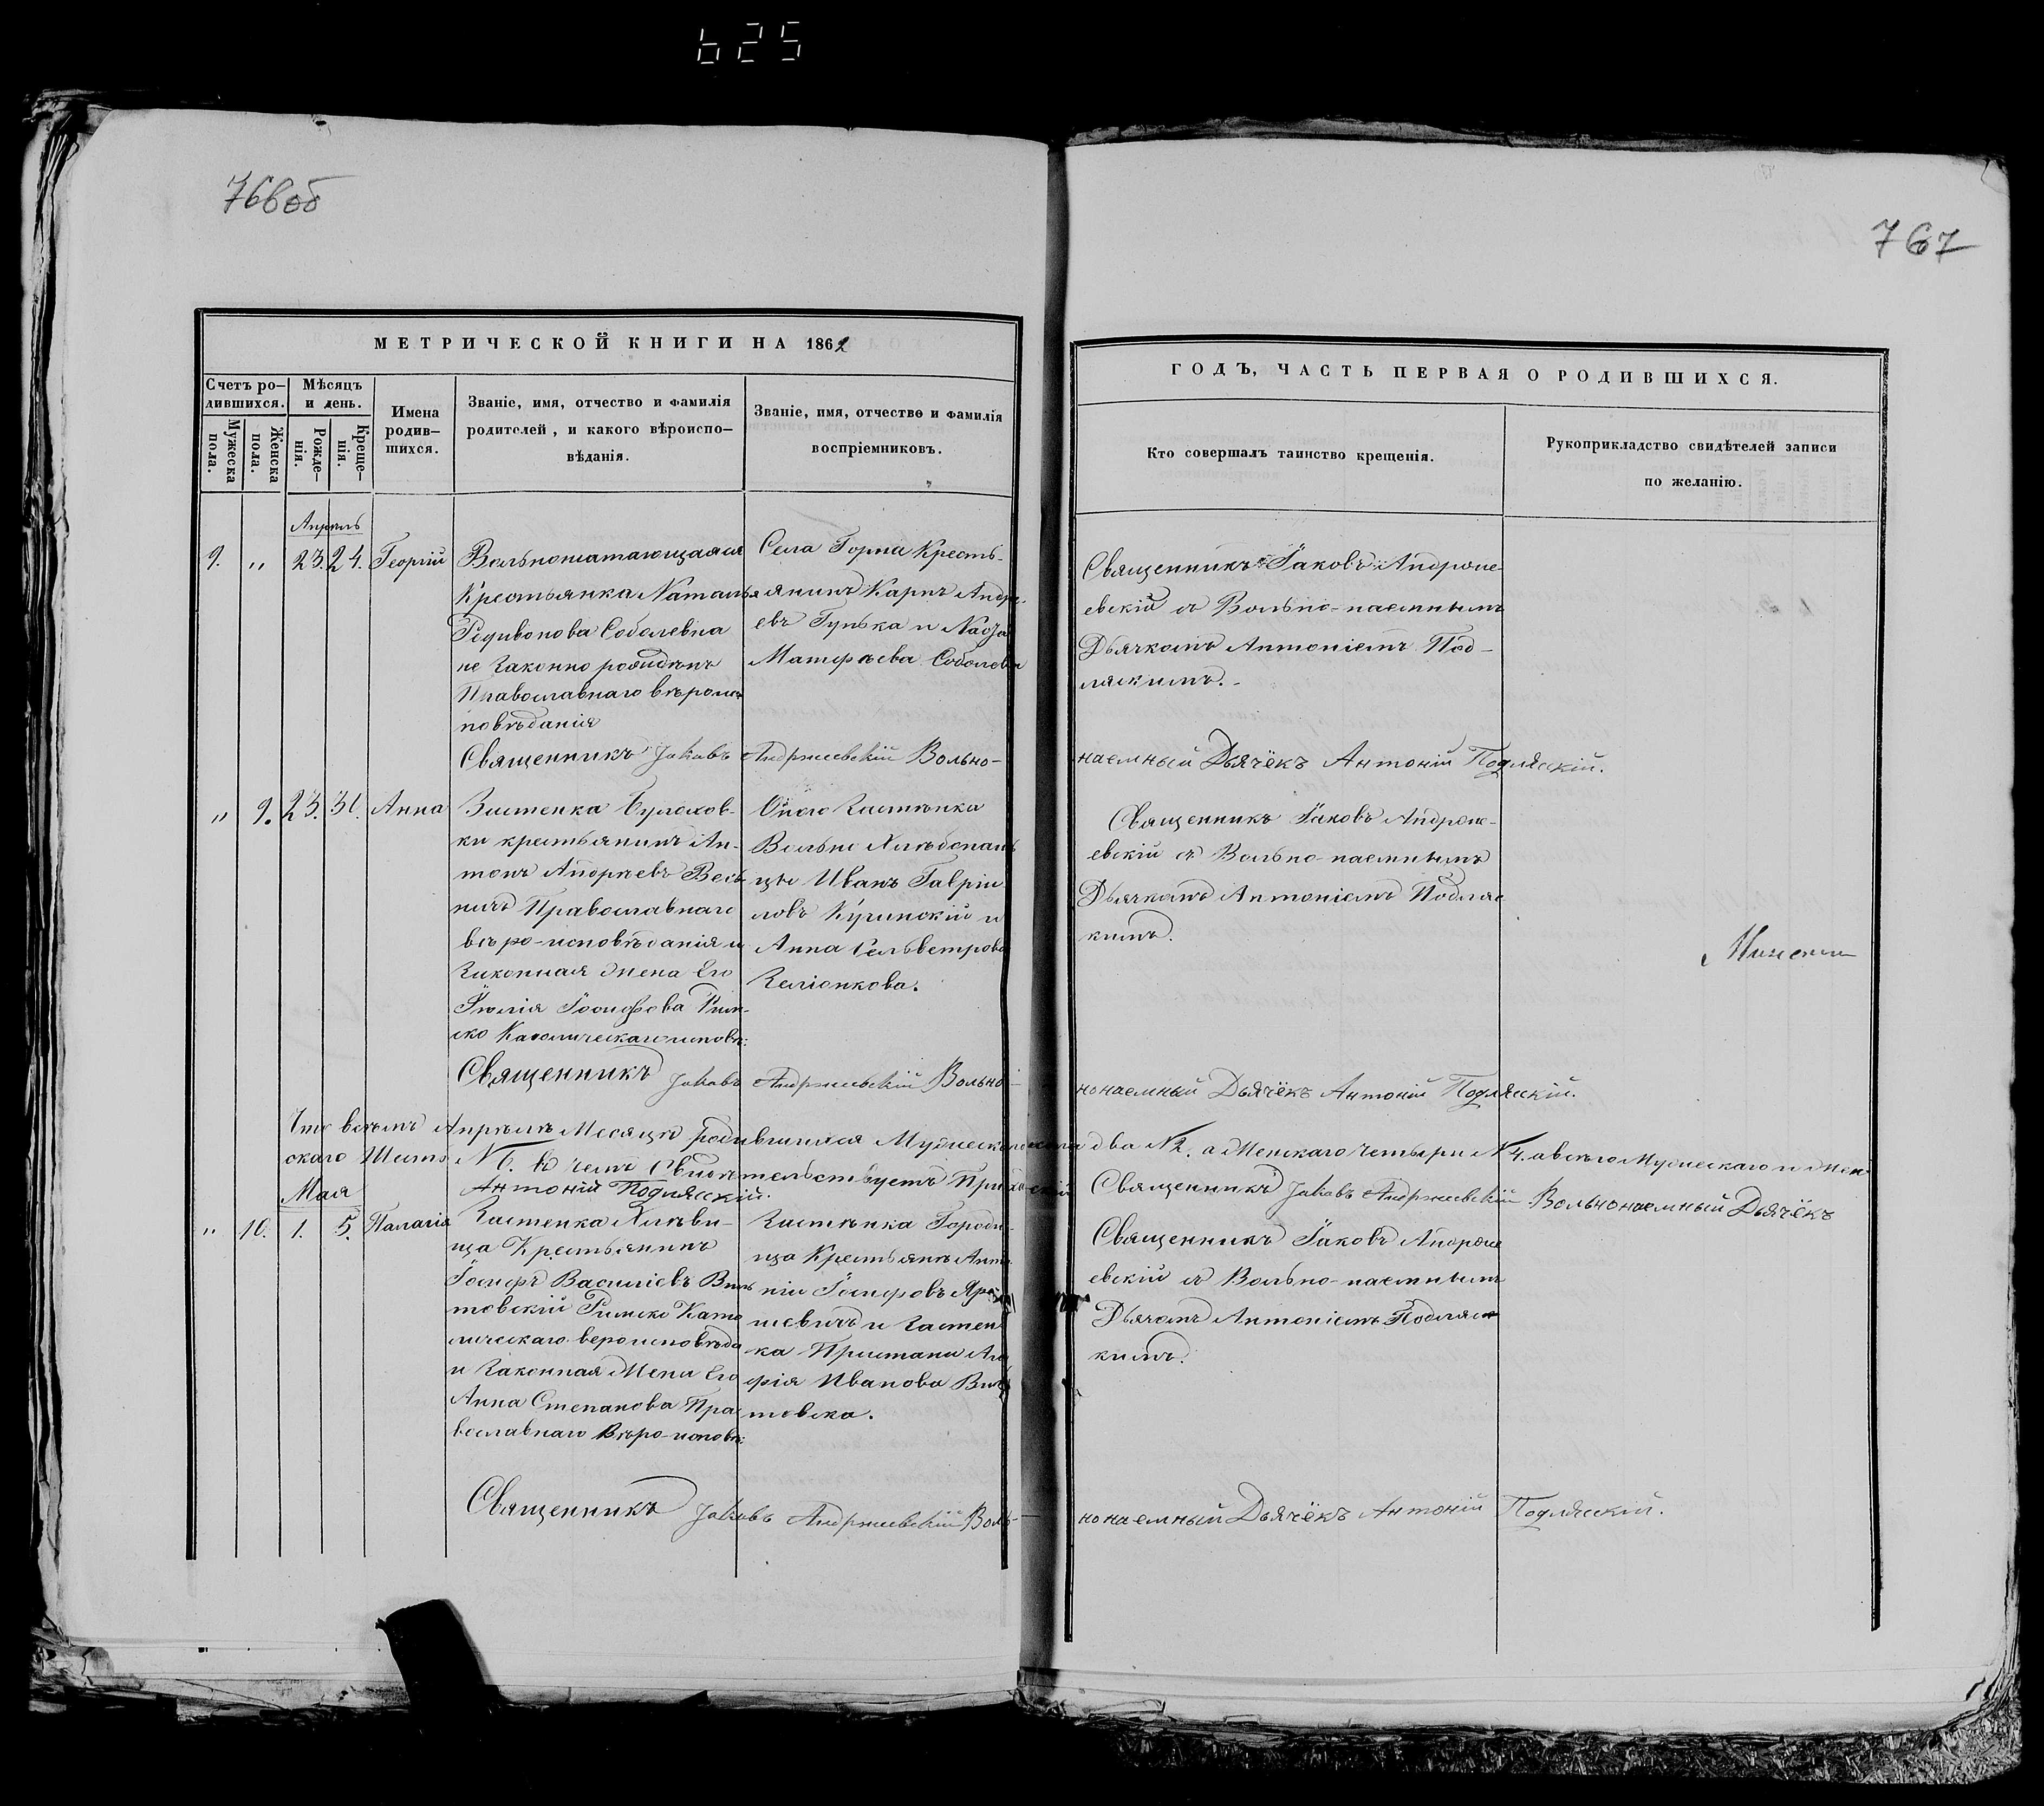 625
766 об
767
МЕТРИЧЕСКОЙ КНИГИ НА 1862
ГОДЪ, ЧАСТЬ ПЕРВАЯ О РОДИВШИХСЯ.
Счетъ ро-
дившихся.
Мужеска
пола.
Женска
пола.
Мѣсяцъ
и день.
Рожде-
нія.
Креще-
нія.
Имена
родив-
шихся.
Званіе, имя, отчество и фамилія
родителей, и какого вѣроиспо-
вѣданія.
Званіе, имя, отчество и фамилія
воспріемниковъ.
Кто совершалъ таинство крещенія.
Рукоприкладство свидѣтелей записи
по желанію.
Апрель
9. " 23. 24. Георгій
Крестьянка Наталья
Соболевна
не законно
Православнаго вѣроис
повѣданія
Села Горна Кресть-
янинъ Карпъ Андре
евъ Гулька и
Матфѣева
Священникъ Іаковъ
евскій съ Вольно-наемнымъ
Дьячкомъ Антоніемъ Под-
ляскимъ.-
Священникъ Јаковъ Андржеевскій Вольно-
наемный Дьячёкъ Антоній Подляскій.
" 9. 23. 31. Анна
Застенка
ки крестьянинъ Ан-
тонъ Андреевъ
Православнаго
вѣро-исповѣданія и
Законная жена Его
Юлія Іосифова Рим-
ско Католическаго исповѣ:
Оного Застѣнка
Вольне
цы Иванъ Гаврїи
ловъ и
Анна Сельвестрова
Священникъ Іаковъ
евскій съ Вольно-наемнымъ
Дьячкомъ Антоніемъ Подляс
кимъ.
Священникъ Јаковъ Андржеевскій Вольно-
нонаемный Дьячёкъ Антоній Подляскій.
Что всѣмъ Апрѣлѣ Месяцѣ родившихся два №2. а Женскаго четыри №4. а всего Мужескаго и жен
скаго Шесть №6. въ чемъ Свидѣтельствуетъ Священникъ Јаковъ Андржеевскій Вольнонаемный Дьячёкъ
Антоній Подляскій.
Мая
" 10. 1. 5. Палагія
Застенка
ца Крестьянинъ
Іосифъ Василіевъ Вит
товскій Римско Като
лическаго вероисповѣда
и Законная Жена Его
Анна Степанова Пра
вославнаго Вѣро-исповѣ:
Застѣнка Городи-
ца Крестьянъ Анто
ній Іосифовъ
шевичъ и Застен
ка Пристани
Иванова Вит
товска.
Священникъ Іаковъ
евскій съ Вольно-наемнымъ
Дьячомъ Антоніемъ Подляс
кимъ.
Священникъ Јаковъ Андржеевскій Воль-
нонаемный Дьячёкъ Антоній Подляскій.